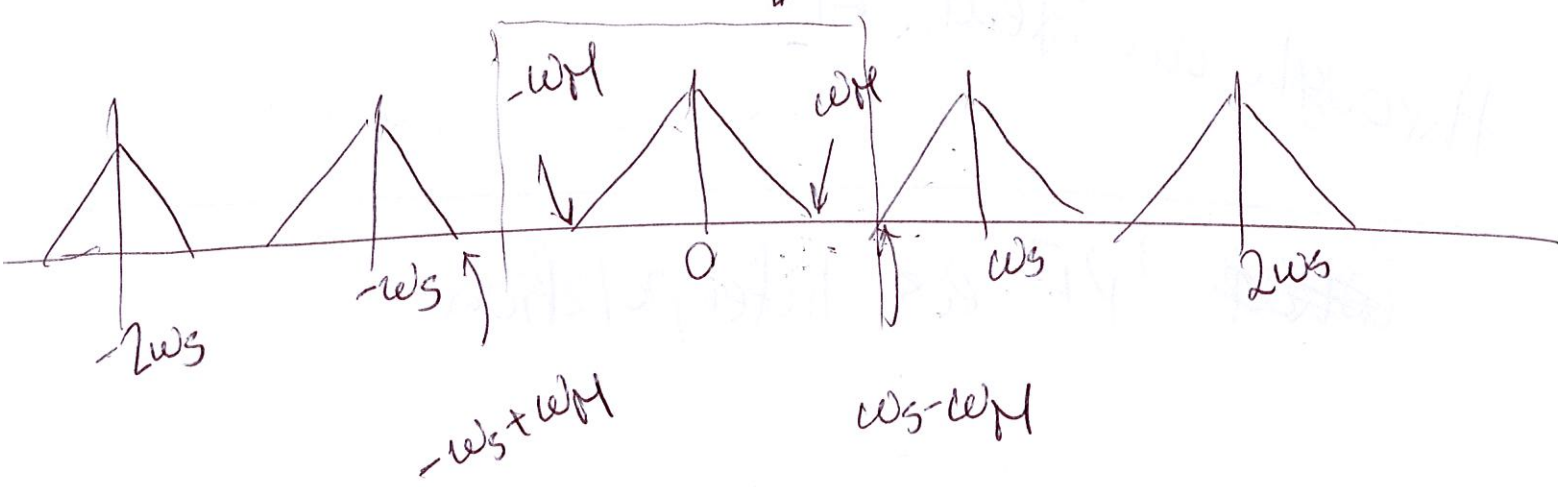 -ωM ωM
-2ωs -ωs 0 ωs 2ωs
-ωs+ωM ωs-ωM